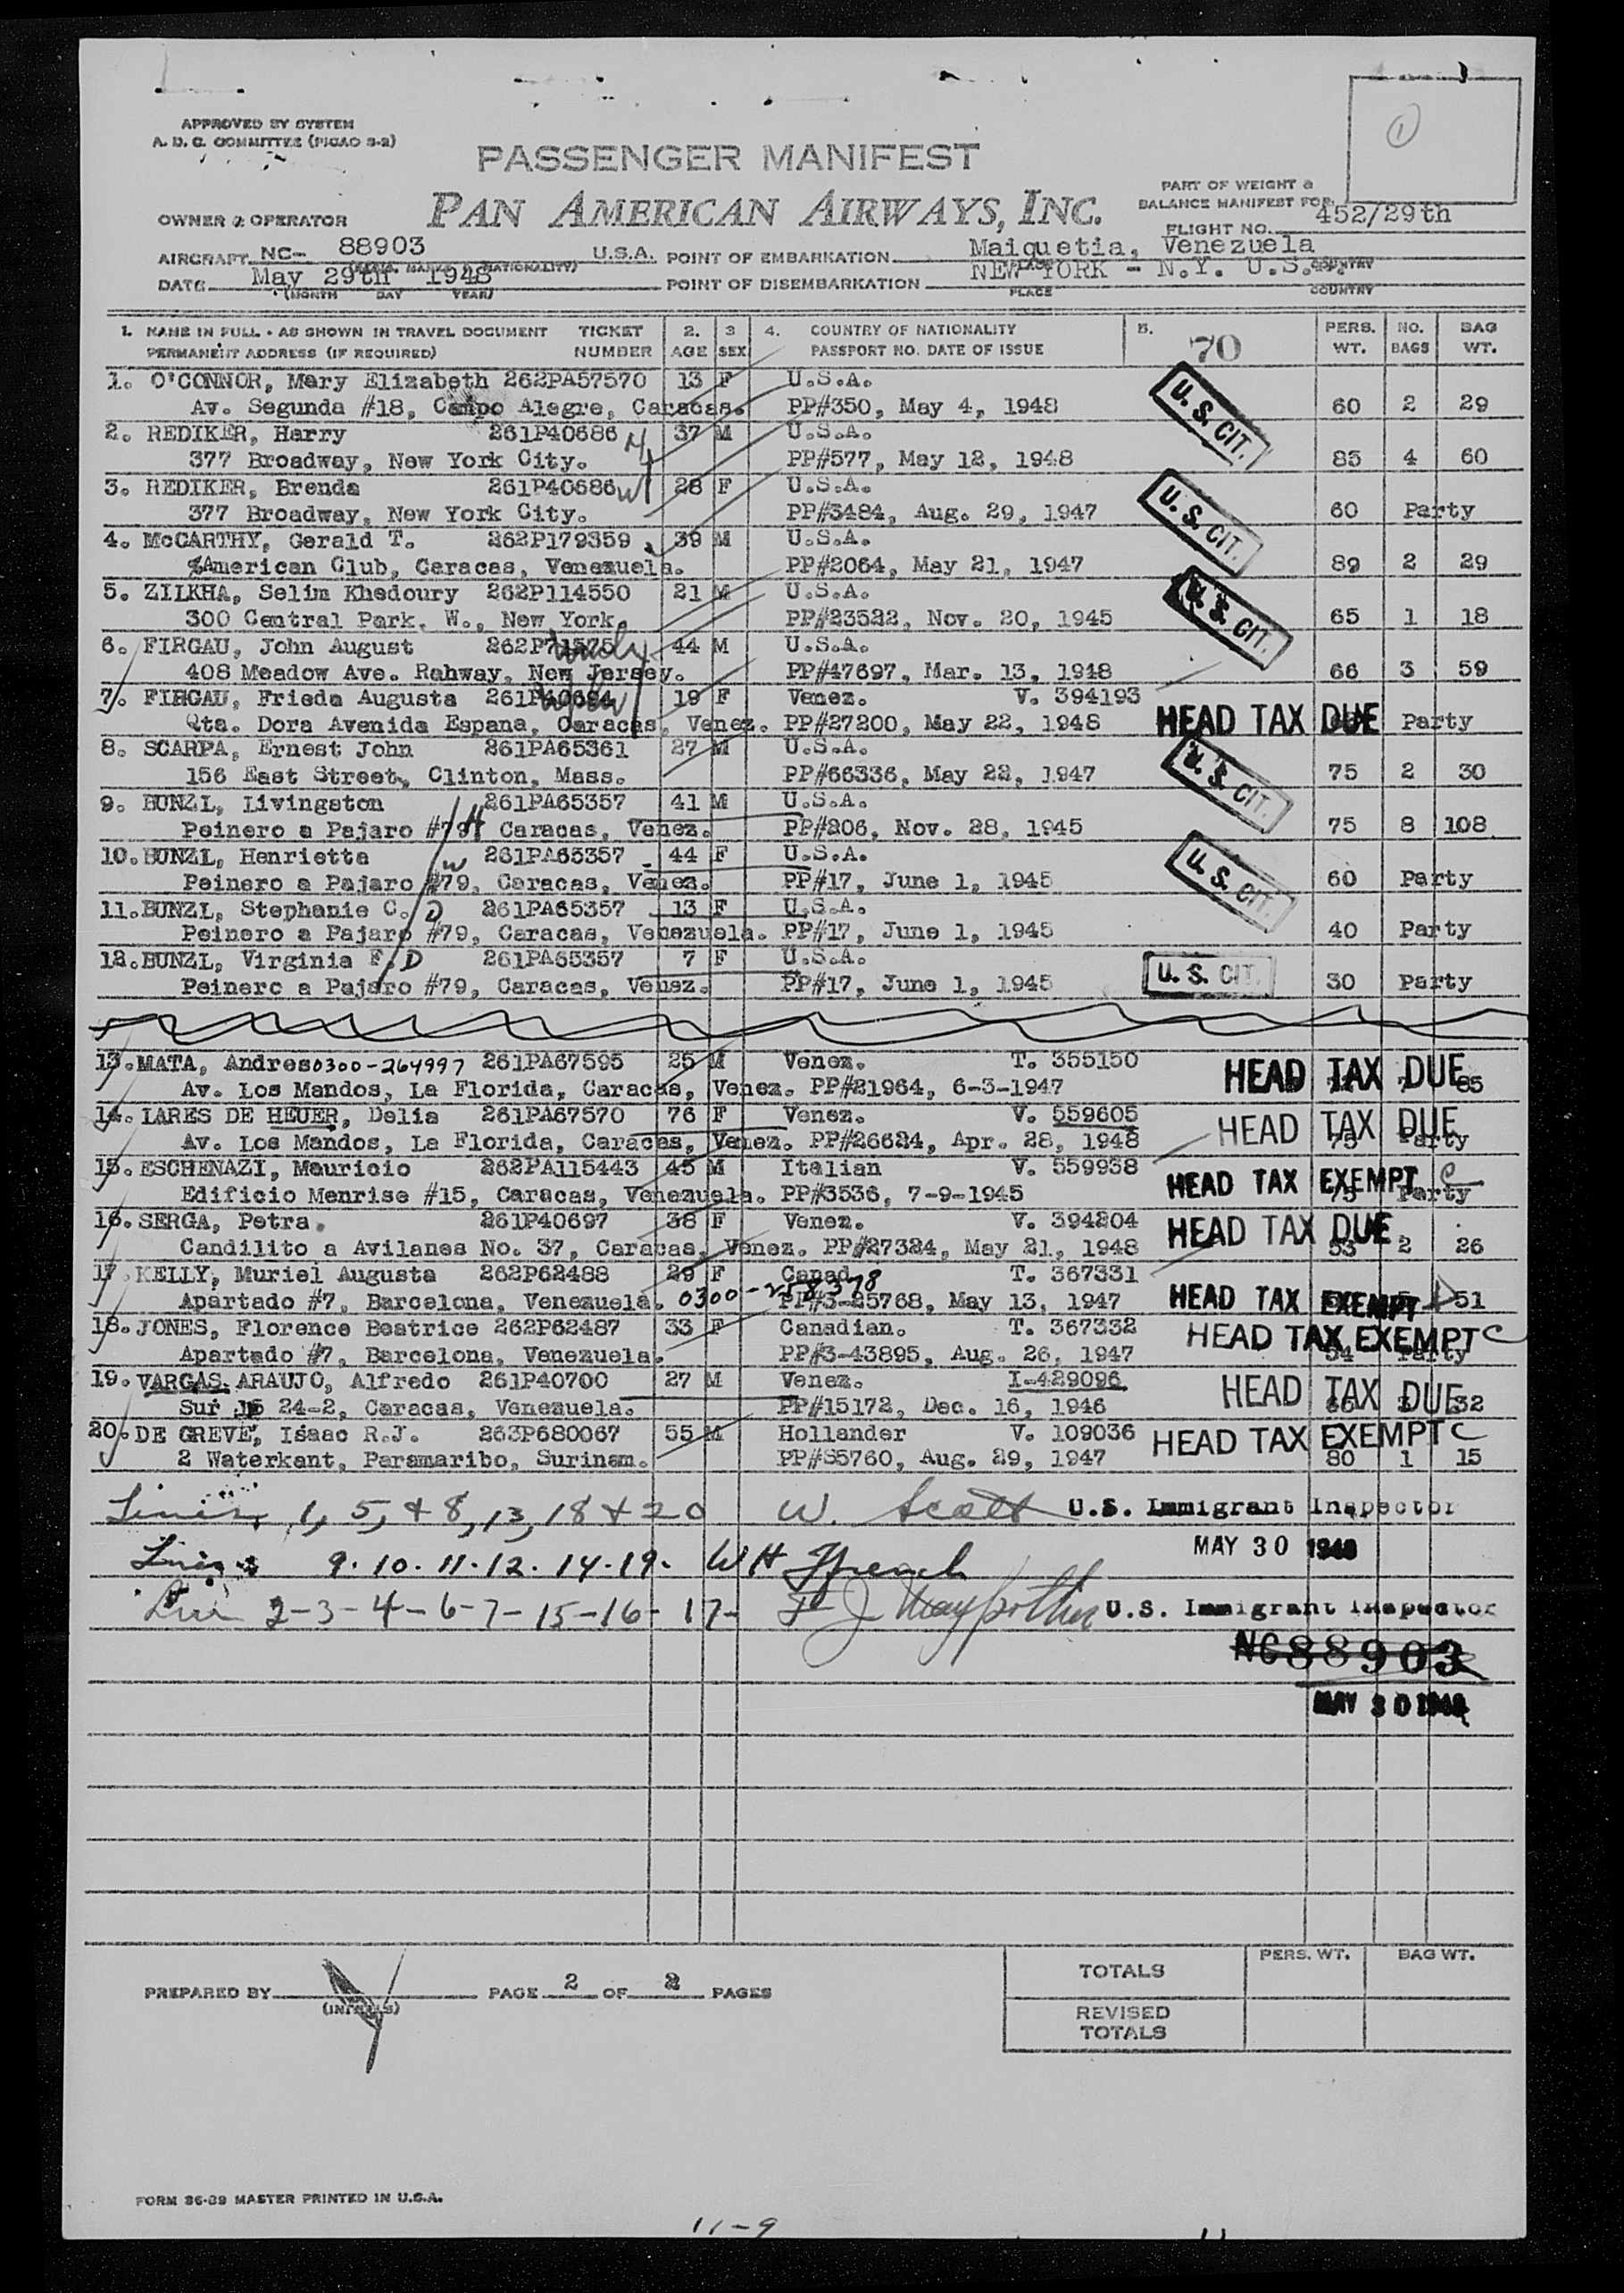 1
APPROVED BY SYSTEM
A. D. C. COMMITTEE (PICAO 3-2)
PASSENGER MANIFEST
PAN AMERICAN AIRWAYS, INC.
PART OF WEIGHT &
BALANCE MANIFEST FOR
FLIGHT NO. 452/29th
OWNER & OPERATOR
AIRCRAFT NC- 88903 U.S.A. POINT OF EMBARKATION Maiquetia, Venezuela
DATE May 29th 1948 POINT OF DISEMBARKATION NEW YORK - N.Y. U.S.
(MONTH DAY YEAR) PLACE COUNTRY
1. NAME IN FULL - AS SHOWN IN TRAVEL DOCUMENT TICKET 2. 3 4. COUNTRY OF NATIONALITY 5. 70 PERS. NO. BAG
PERMANENT ADDRESS (IF REQUIRED) NUMBER AGE SEX PASSPORT NO. DATE OF ISSUE WT. BAGS WT.
1. O'CONNOR, Mary Elizabeth 262PA57570 13 F U.S.A. U.S. CIT.
Av. Segunda #18, Campo Alegre, Caracas. PP#350, May 4, 1948 60 2 29
2. REDIKER, Harry 261P40686 H 37 M U.S.A.
377 Broadway, New York City. PP#577, May 12, 1948 85 4 60
3. REDIKER, Brenda 261P40686 W 28 F U.S.A. U.S. CIT.
377 Broadway, New York City. PP#3484, Aug. 29, 1947 60 Party
4. McCARTHY, Gerald T. 262P179359 39 M U.S.A.
%American Club, Caracas, Venezuela. PP#2064, May 21, 1947 89 2 29
5. ZILKHA, Selim Khedoury 262P114550 21 M U.S.A. U.S. CIT.
300 Central Park. W., New York. PP#23522, Nov. 20, 1945 65 1 18
6. FIRGAU, John August 44 M U.S.A.
408 Meadow Ave. Rahway, New Jersey. PP#47697, Mar. 13, 1948 66 3 59
7. FIRGAU, Frieda Augusta 19 F Venez. V. 394193
Qta. Dora Avenida Espana, Caracas, Venez. PP#27200, May 22, 1948 HEAD TAX DUE Party
8. SCARPA, Ernest John 261PA65361 27 M U.S.A. U.S. CIT.
156 East Street, Clinton, Mass. PP#66336, May 22, 1947 75 2 30
9. BUNZL, Livingston 261PA65357 41 M U.S.A.
Peinero a Pajaro #79 H Caracas, Venez. PP#206, Nov. 28, 1945 75 8 108
10. BUNZL, Henrietta W 261PA65357 44 F U.S.A. U.S. CIT.
Peinero a Pajaro #79, Caracas, Venez. PP#17, June 1, 1945 60 Party
11. BUNZL, Stephanie C. D 261PA65357 13 F U.S.A.
Peinero a Pajaro #79, Caracas, Venezuela. PP#17, June 1, 1945 40 Party
12. BUNZL, Virginia F. D 261PA65357 7 F U.S.A. U.S. CIT.
Peinero a Pajaro #79, Caracas, Venez. PP#17, June 1, 1945 30 Party
13. MATA, Andres 0300-264997 261PA67595 25 M Venez. T. 355150 HEAD TAX DUE
Av. Los Mandos, La Florida, Caracas, Venez. PP#21964, 6-3-1947 85
14. LARES DE HEUER, Delia 261PA67570 76 F Venez. V. 559605 HEAD TAX DUE
Av. Los Mandos, La Florida, Caracas, Venez. PP#26624, Apr. 28, 1948 75 Party
15. ESCHENAZI, Mauricio 262PA115443 45 M Italian V. 559938 HEAD TAX EXEMPT C
Edificio Menrise #15, Caracas, Venezuela. PP#3536, 7-9-1945 75 Party
16. SERGA, Petra. 261P40697 38 F Venez. V. 394204 HEAD TAX DUE
Candilito a Avilanes No. 37, Caracas, Venez. PP#27324, May 21, 1948 53 2 26
17. KELLY, Muriel Augusta 262P62488 29 F Canad. T. 367331
Apartado #7, Barcelona, Venezuela. 0300-258378 PP#3-25768, May 13, 1947 HEAD TAX EXEMPT 51
18. JONES, Florence Beatrice 262P62487 33 F Canadian. T. 367332 HEAD TAX EXEMPT C
Apartado #7, Barcelona, Venezuela. PP#3-43895, Aug. 26, 1947 54 Party
19. VARGAS ARAUJO, Alfredo 261P40700 27 M Venez. I-429096 HEAD TAX DUE
Sur 15 24-2, Caracas, Venezuela. PP#15172, Dec. 16, 1946 32
20. DE GREVE, Isaac R.J. 263P680067 55 M Hollander V. 109036 HEAD TAX EXEMPT C
2 Waterkant, Paramaribo, Surinam. PP#S5760, Aug. 29, 1947 80 1 15
Lines 1, 5, & 8, 13, 18 & 20 W. Scott U.S. Immigrant Inspector
MAY 30 1948
Lines 9. 10. 11. 12. 14. 19. W H French
Line 2-3-4-6-7-15-16-17- U.S. Immigrant Inspector
NC88903
MAY 30 1948
PREPARED BY (INITIALS) PAGE 2 OF 2 PAGES
PERS. WT. BAG WT.
TOTALS
REVISED TOTALS
FORM 36-39 MASTER PRINTED IN U.S.A.
11-9